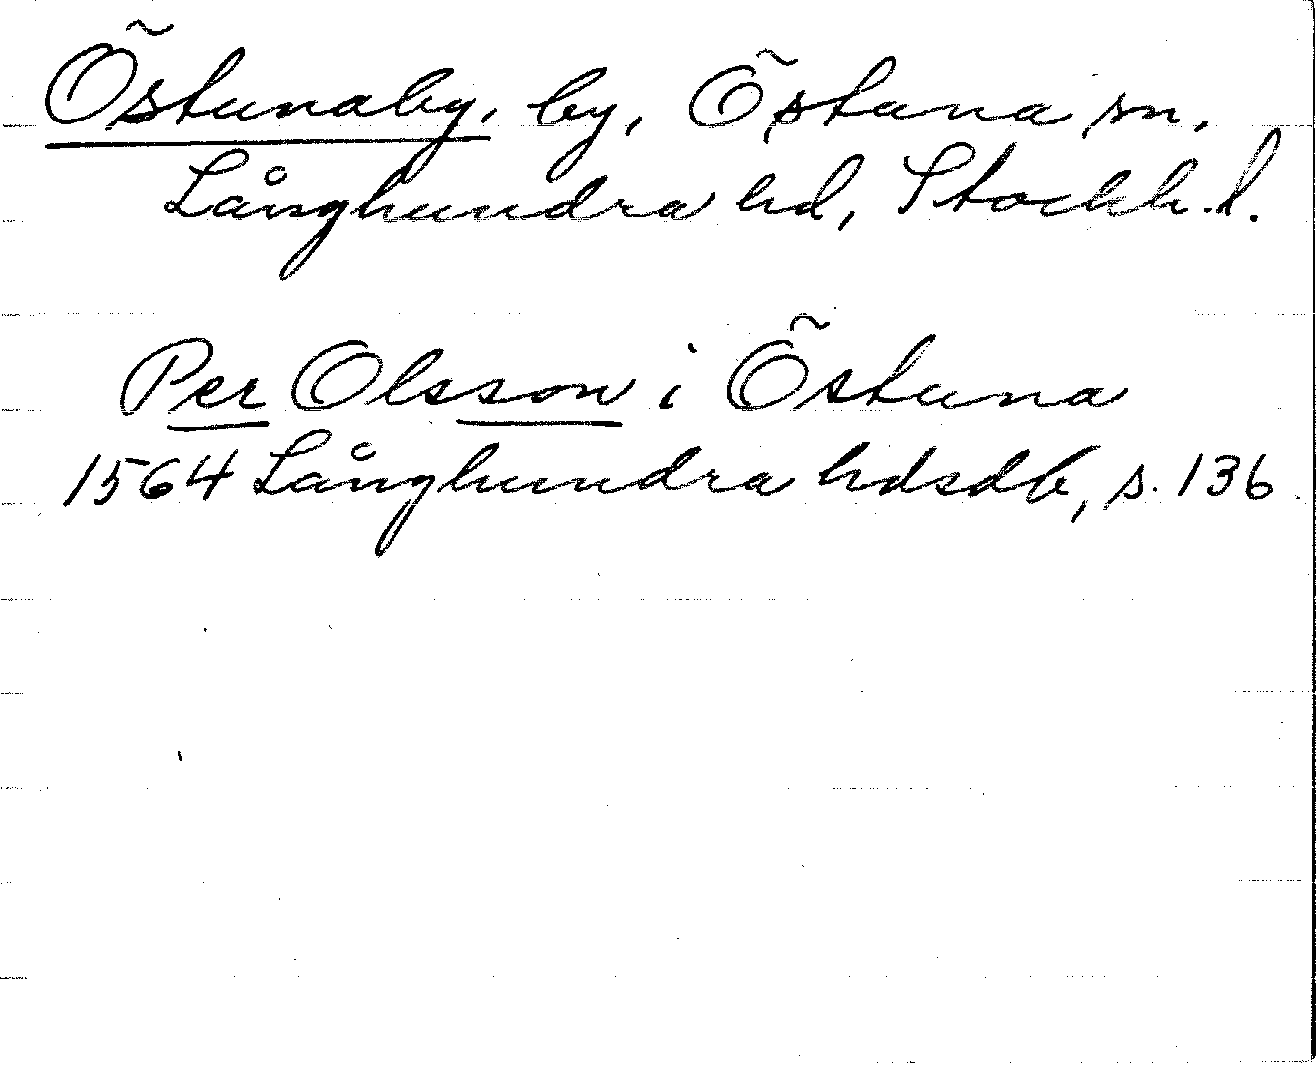 Östunaby, by, Östuna sn.
Långhundra hd, Stockh. l.
Per Olsson i Östuna
1564 Långhundra hdsdb, s. 136